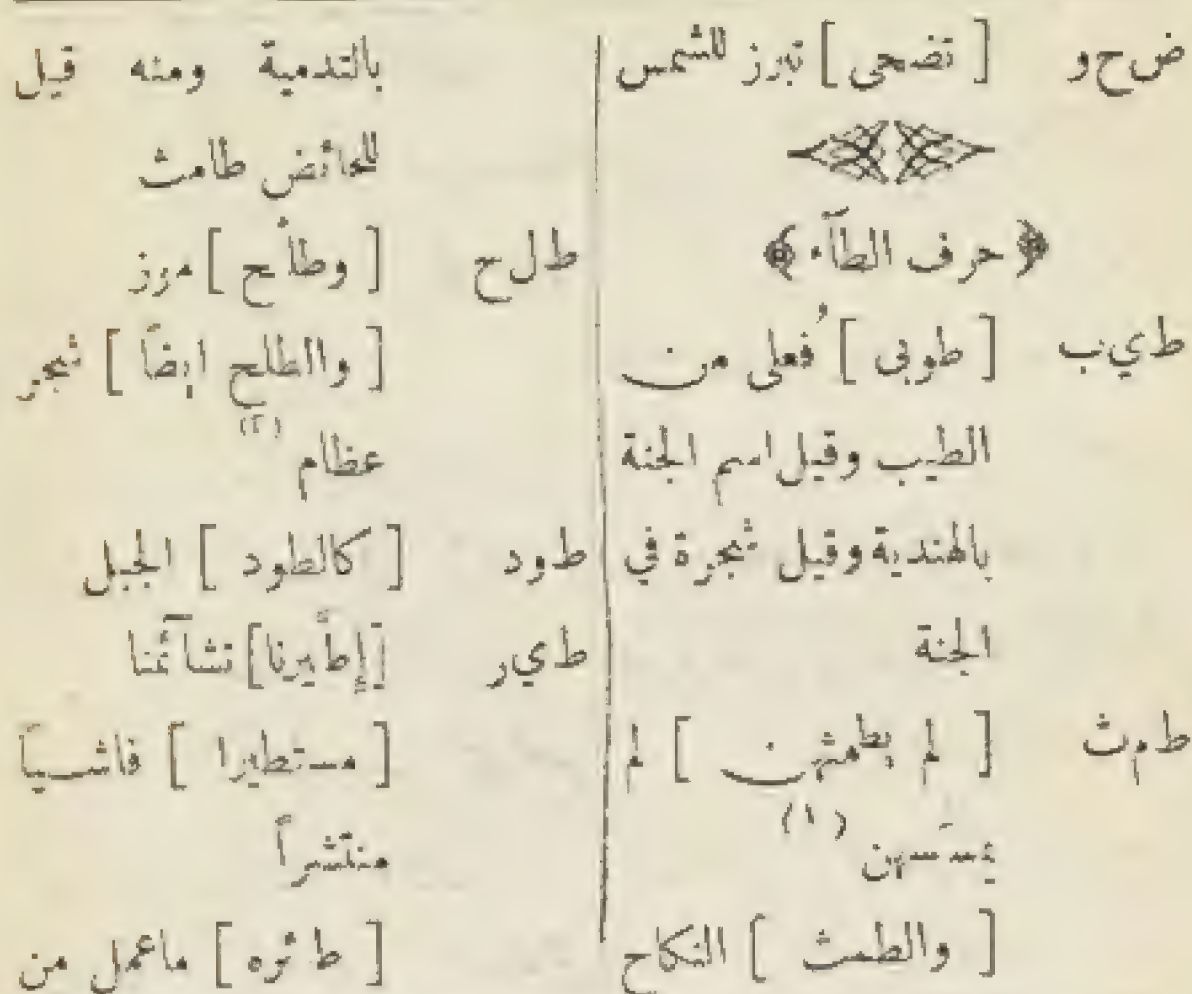 ض ح و [ تضحى ] تبرز للشمس
﴿ حرف الطآء ﴾
ط ي ب [ طوبى ] فُعلى من
الطيب وقيل اسم الجنة
بالهندية وقيل شجرة في
الجنة
ط م ث [ لم يطمثهن ] لم
يمسسهن (١)
[ والطمث ] النكاح
بالتدمية ومنه قيل
للحائض طامث
ط ل ح [ وطلح ] موز
[ والطلح ايضاً ] شجر
عظام (٢)
ط و د [ كالطود ] الجبل
ط ي ر [إطّيرنا] تشآئمنا
[ مستطيرا ] فاشــياً
منتشراً
[ طئره ] ماعمل من